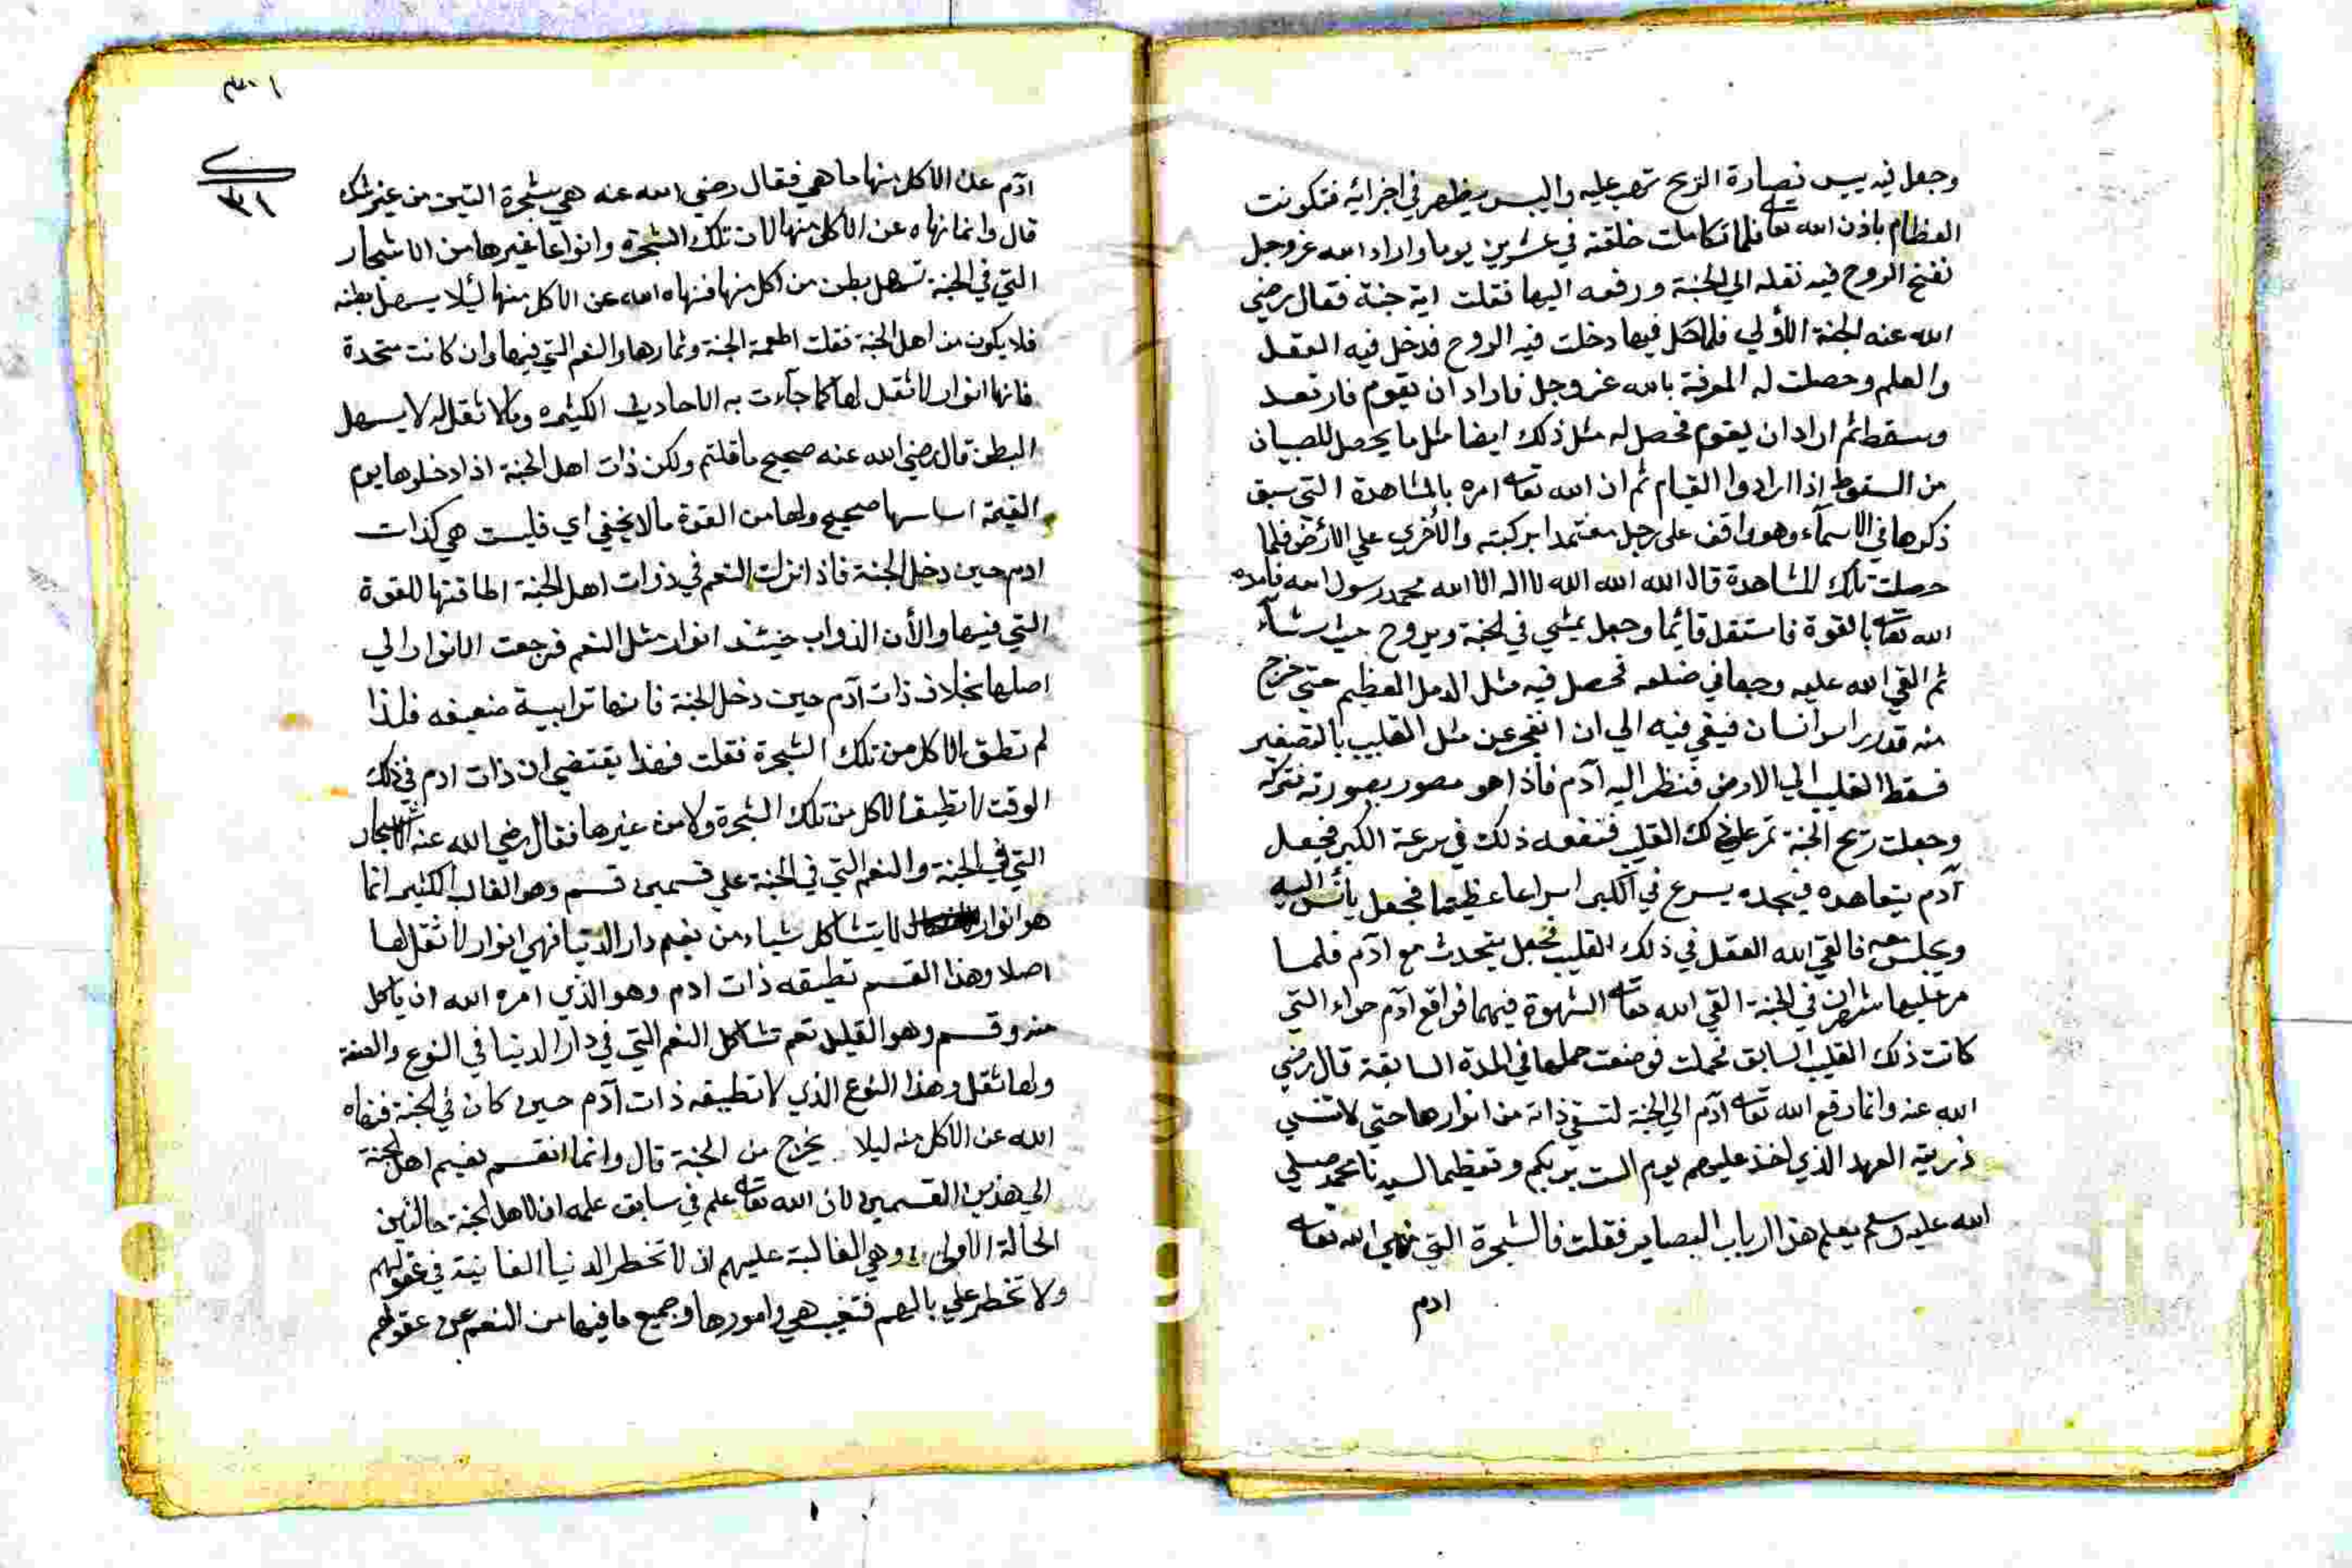 وجعل فيه يبس فصارة الريح تهب عليه واليبس يظهر في اجزائه فتكونت
العظام باذن الله تعالى فلما تكاملت خلقته في عشرين يوما واراد الله عز وجل
نفخ الروح فيه نقله الي الجنة ورفعه اليها فقلت اية جنة فقال رضي
الله عنه الجنة الأولي فلما حل فيها دخلت فيه الروح فدخل فيه العقل
والعلم وحصلت له المعرفة بالله عز وجل فاراد ان يقوم فارتعد
وسقط ثم اراد ان يقوم فحصل له مثل ذلك ايضا مثل ما يحصل للصبيان
من السقوط اذا ارادوا القيام ثم ان الله تعالى امره بالمشاهدة التي سبق
ذكرها في الاسمآء وهو واقف على رجل معتمدا بركبته والأخري علي الارض فلما
حصلت تلك المشاهدة قال الله الله الله لا اله الا الله محمد رسول الله فامده
الله تعالى بالقوة فاستقل قائما وجعل يمشي في الجنة ويروح حيث شآء
ثم القي الله عليه وجعا في ضلعه فحصل فيه مثل الدمل العظيم حتي خرج
منه قدر راس انسان فبقي فيه الي ان انفجر عن مثل القليب بالتصغير
فسقط القليب الي الارض فنظر اليه آدم فاذا هو مصور بصورته فتركه
وجعلت ريح الجنة تمر علي ذلك القليب فنفعه ذلك في سرعة الكبر فجعل
آدم يتعاهده فيجده يسرع في الكبر اسراعا عظيما فجعل يأنس اليه
ويجلس معه فالقي الله العقل في ذلك القليب فجعل يتحدث مع آدم فلما
مر عليها شهران في الجنة القي الله تعالى الشهوة فيهما فواقع آدم حواء التي
كانت ذلك القليب السابق فحملت فوضعت حملها في المدة السابقة قال رضي
الله عنه وانما رفع الله تعالى آدم الي الجنة لتسقي ذاته من انوارها حتي لا تنسي
ذريته العهد الذي اخذ عليهم يوم الست بربكم وتعظيما لسيدنا محمد صلي
الله عليه وسلم يعلم هذا ارباب البصاير فقلت فالشجرة التي نهي الله تعالى
ادم
٣١
آدم عن الاكل منها ما هي فقال رضي الله عنه هي شجرة التين من غير شك
قال وانما نهاه عن الاكل منها لان تلك الشجرة وانواعا غيرها من الاشجار
التي في الجنة تسهل بطن من اكل منها فنهاه الله عن الاكل منها ليلا يسهل بطنه
فلا يكون من اهل الجنة فقلت اطعمة الجنة وثمارها والنعم التي فيها وان كانت متحدة
فانها انوار لا ثقل لها كما جآءت به الاحاديث الكثيره وما لا ثقل له لا يسهل
البطن قال رضي الله عنه صحيح ما قلتم ولكن ذات اهل الجنة اذا دخلوها يوم
القيمة اساسها صحيح ولها من القوة ما لا يخفي اي فليست هي كذات
ادم حين دخل الجنة فاذا نزلت النعم في ذوات اهل الجنة اطاقتها للقوة
التي فيها والأن الذوات حينئذ انوار مثل النعم فرجعت الانوار الي
اصلها بخلاف ذات آدم حين دخل الجنة فانها ترابية ضعيفه فلذا
لم تطق الاكل من تلك الشجرة فقلت فهذا يقتضي ان ذات ادم في ذلك
الوقت لا تطيق الاكل من تلك الشجرة ولا من غيرها فقال رضي الله عنه الاشجار
التي في الجنة والنعم التي في الجنة علي قسمين قسم وهو الغالب الكثير انما
هو انوار لا يتشاكل شياء من نعيم دار الدنيا فهي انوار لا ثقل لها
اصلا وهذا القسم تطيقه ذات ادم وهو الذي امره الله ان ياكل
منه وقسم وهو القليل نعم تشاكل النعم التي في دار الدنيا في النوع والصفة
ولها ثقل وهذا النوع الذي لا تطيقه ذات آدم حين كان في الجنة فنهاه
الله عن الاكل منه ليلا يخرج من الجنة قال وانما انقسم نعيم اهل الجنة
الي هذين القسمين لان الله تعالى علم في سابق علمه ان لاهل الجنة حالتين
الحالة الاولى وهي الغالبة عليهم ان لا تخطر الدنيا الفانية في عقولهم
ولا تخطر علي بالهم فتغيب هي وامورها وجميع ما فيها من النعم عن عقولهم